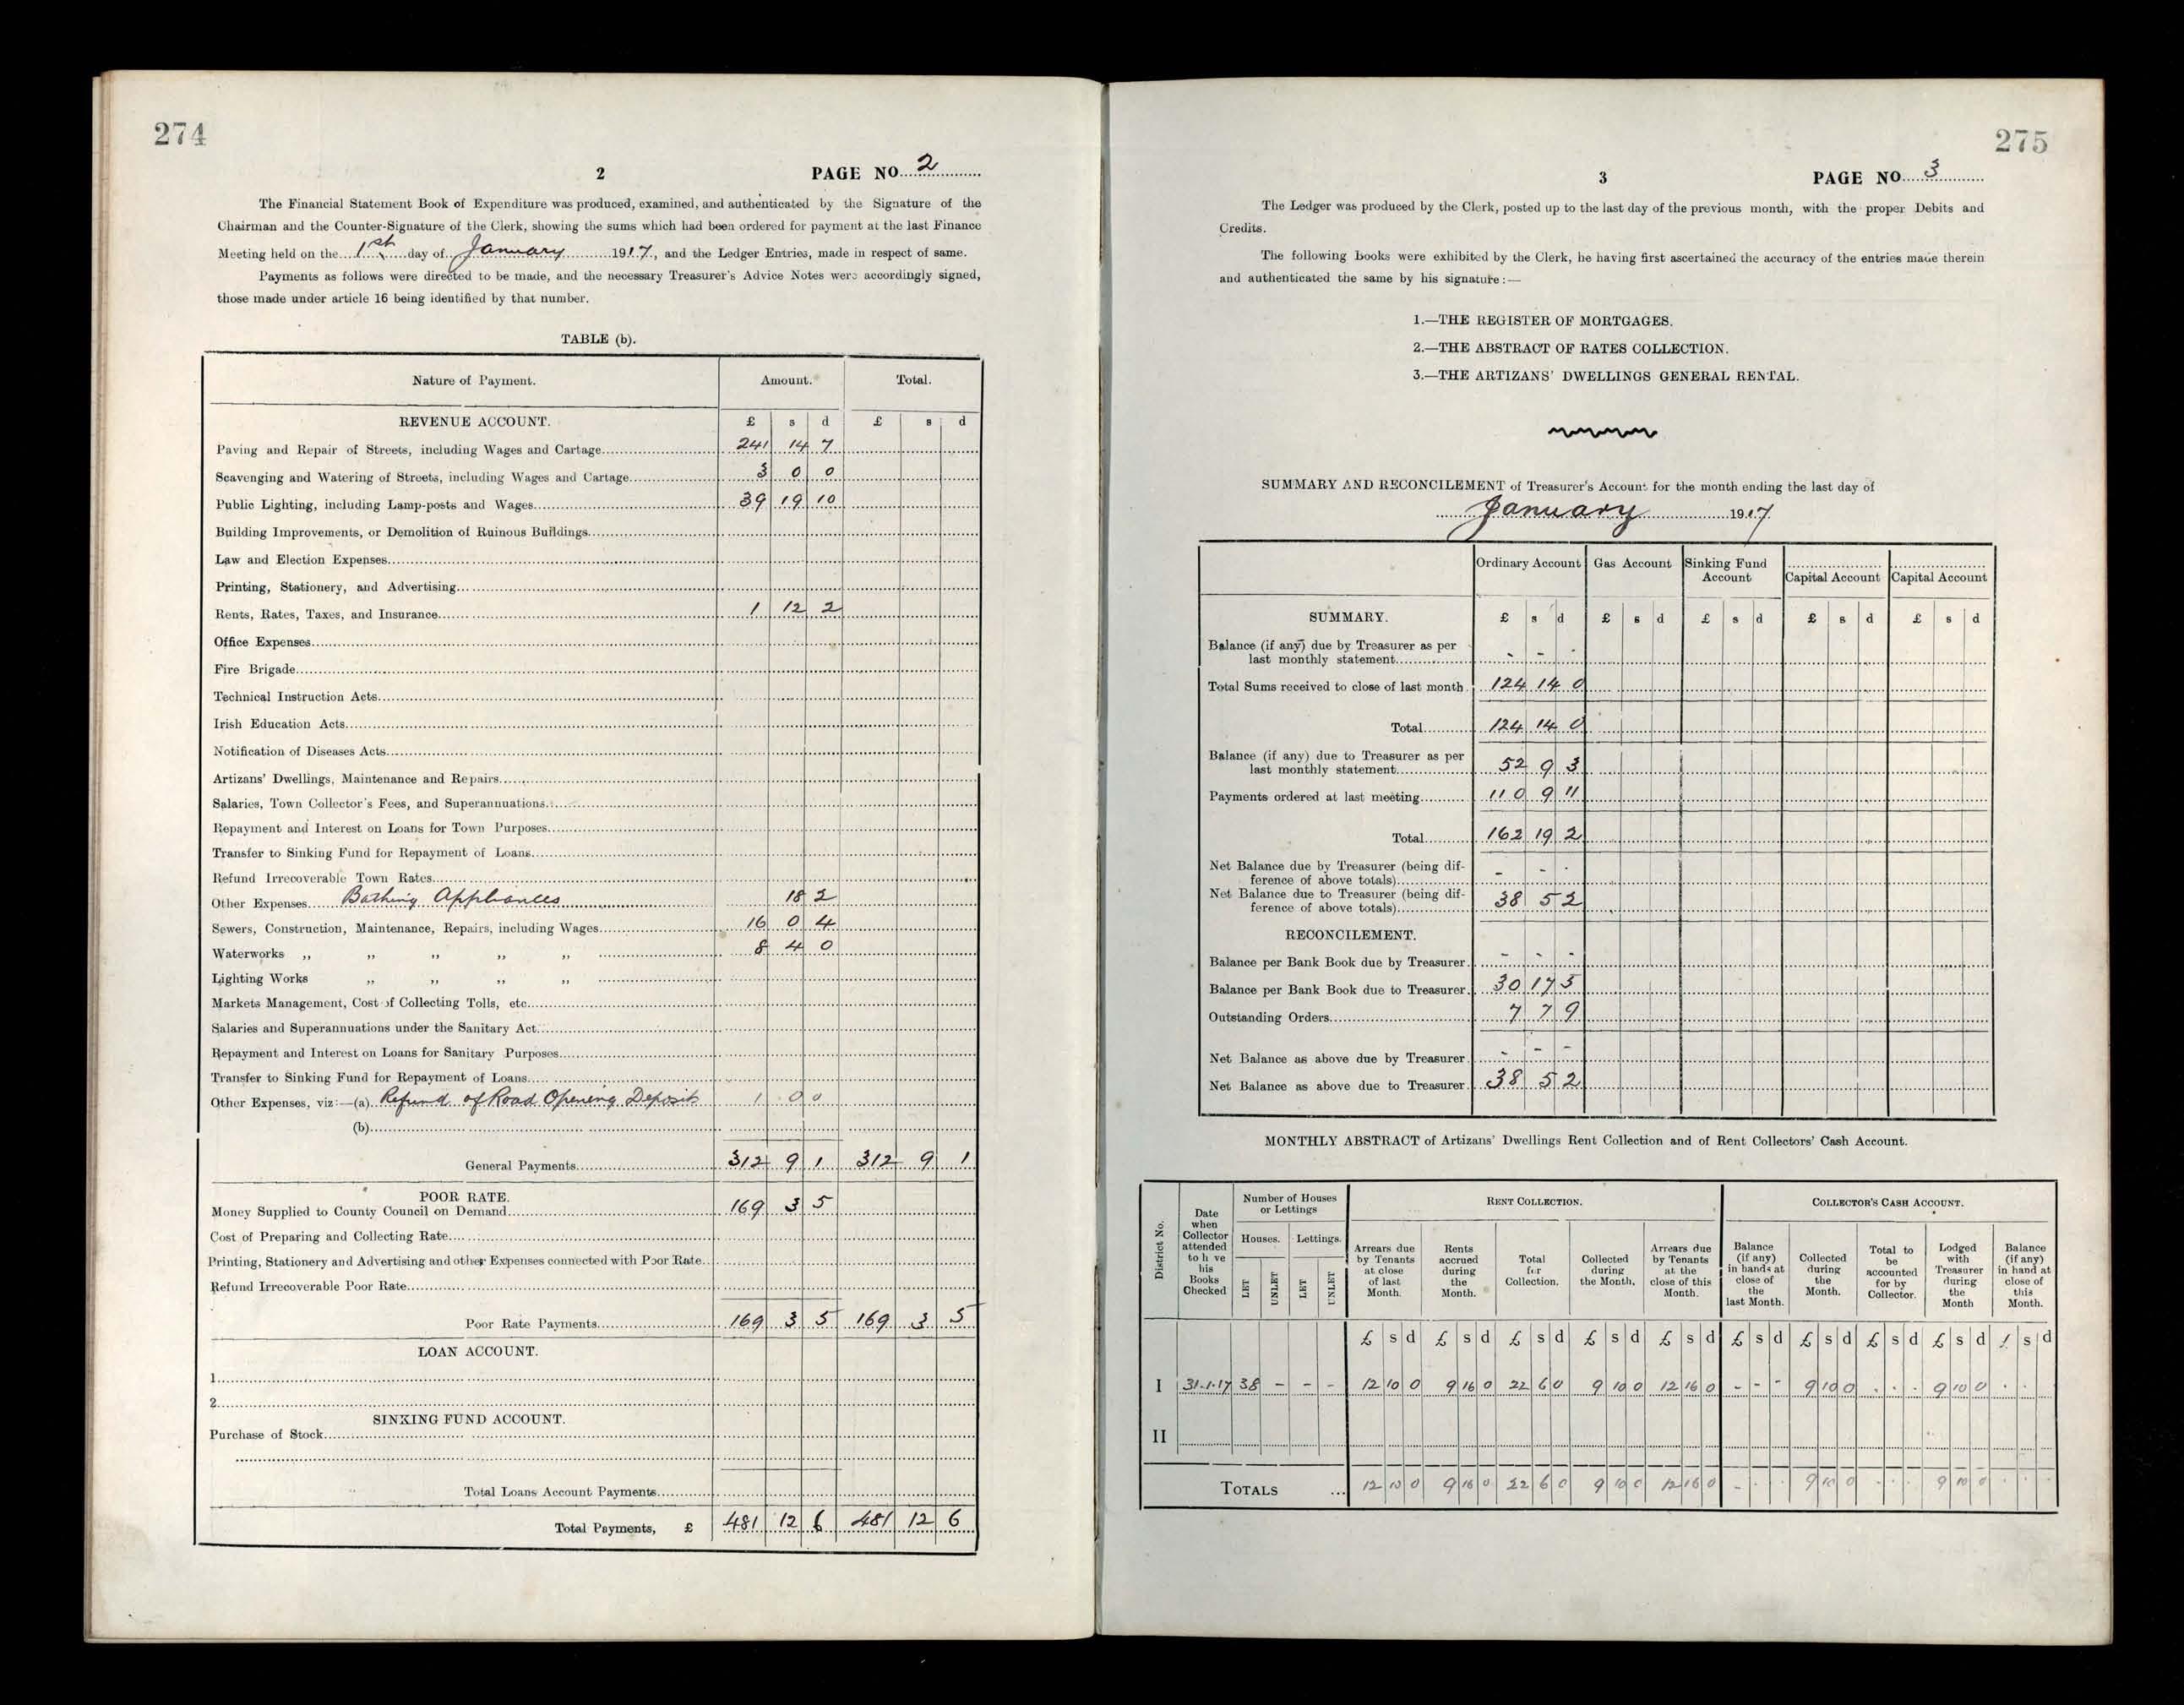 274
2 PAGE NO. 2
The Financial Statement Book of Expenditure was produced, examined, and authenticated by the Signature of the
Chairman and the Counter-Signature of the Clerk, showing the sums which had been ordered for payment at the last Finance
Meeting held on the 1st day of January 1917, and the Ledger Entries, made in respect of same.
Payments as follows were directed to be made, and the necessary Treasurer's Advice Notes were accordingly signed,
those made under article 16 being identified by that number.
TABLE (b).
Nature of Payment. Amount. Total.
REVENUE ACCOUNT. £ s d £ s d
Paving and Repair of Streets, including Wages and Cartage 241 14 7
Scavenging and Watering of Streets, including Wages and Cartage 3 0 0
Public Lighting, including Lamp-posts and Wages 39 19 10
Building Improvements, or Demolition of Ruinous Buildings
Law and Election Expenses
Printing, Stationery, and Advertising
Rents, Rates, Taxes, and Insurance 1 12 2
Office Expenses
Fire Brigade
Technical Instruction Acts
Irish Education Acts
Notification of Diseases Acts
Artizans' Dwellings, Maintenance and Repairs
Salaries, Town Collector's Fees, and Superannuations
Repayment and Interest on Loans for Town Purposes
Transfer to Sinking Fund for Repayment of Loans
Refund Irrecoverable Town Rates
Other Expenses Bathing Appliances 18 2
Sewers, Construction, Maintenance, Repairs, including Wages 16 0 4
Waterworks ,, ,, ,, ,, ,, 8 4 0
Lighting Works ,, ,, ,, ,,
Markets Management, Cost of Collecting Tolls, etc
Salaries and Superannuations under the Sanitary Act
Repayment and Interest on Loans for Sanitary Purposes
Transfer to Sinking Fund for Repayment of Loans
Other Expenses, viz:—(a) Refund of Road Opening Deposit 1 0 0
(b)
General Payments 312 9 1 312 9 1
POOR RATE.
Money Supplied to County Council on Demand 169 3 5
Cost of Preparing and Collecting Rate
Printing, Stationery and Advertising and other Expenses connected with Poor Rate
Refund Irrecoverable Poor Rate
Poor Rate Payments 169 3 5 169 3 5
LOAN ACCOUNT.
1
2
SINKING FUND ACCOUNT.
Purchase of Stock
Total Loans Account Payments
Total Payments, £ 481 12 6 481 12 6
275
3 PAGE NO. 3
The Ledger was produced by the Clerk, posted up to the last day of the previous month, with the proper Debits and
Credits.
The following books were exhibited by the Clerk, he having first ascertained the accuracy of the entries made therein
and authenticated the same by his signature:—
1.—THE REGISTER OF MORTGAGES.
2.—THE ABSTRACT OF RATES COLLECTION.
3.—THE ARTIZANS' DWELLINGS GENERAL RENTAL.
SUMMARY AND RECONCILEMENT of Treasurer's Account for the month ending the last day of
January 1917.
Ordinary Account Gas Account Sinking Fund Account Capital Account Capital Account
SUMMARY. £ s d £ s d £ s d £ s d £ s d
Balance (if any) due by Treasurer as per
last monthly statement - - -
Total Sums received to close of last month 124 14 0
Total 124 14 0
Balance (if any) due to Treasurer as per
last monthly statement 52 9 3
Payments ordered at last meeting 110 9 11
Total 162 19 2
Net Balance due by Treasurer (being dif-
ference of above totals) - - -
Net Balance due to Treasurer (being dif-
ference of above totals) 38 5 2
RECONCILEMENT.
Balance per Bank Book due by Treasurer - - -
Balance per Bank Book due to Treasurer 30 17 5
Outstanding Orders 7 7 9
Net Balance as above due by Treasurer - - -
Net Balance as above due to Treasurer 38 5 2
MONTHLY ABSTRACT of Artizans' Dwellings Rent Collection and of Rent Collectors' Cash Account.
District No.
Date when Collector attended to h ve his Books Checked
Number of Houses or Lettings
Houses. Lettings.
LET UNLET LET UNLET
RENT COLLECTION.
Arrears due by Tenants at close of last Month.
Rents accrued during the Month.
Total for Collection.
Collected during the Month.
Arrears due by Tenants at the close of this Month.
COLLECTOR'S CASH ACCOUNT.
Balance (if any) in hands at close of the last Month.
Collected during the Month.
Total to be accounted for by Collector.
Lodged with Treasurer during the Month
Balance (if any) in hand at close of this Month.
£ s d £ s d £ s d £ s d £ s d £ s d £ s d £ s d £ s d £ s d
I 31.1.17 38 - - - 12 10 0 9 16 0 22 6 0 9 10 0 12 16 0 - - - 9 10 0 . . . 9 10 0 . .
II
TOTALS ... 12 10 0 9 16 0 22 6 0 9 10 0 12 16 0 - . . 9 10 0 . . . 9 10 0 . .